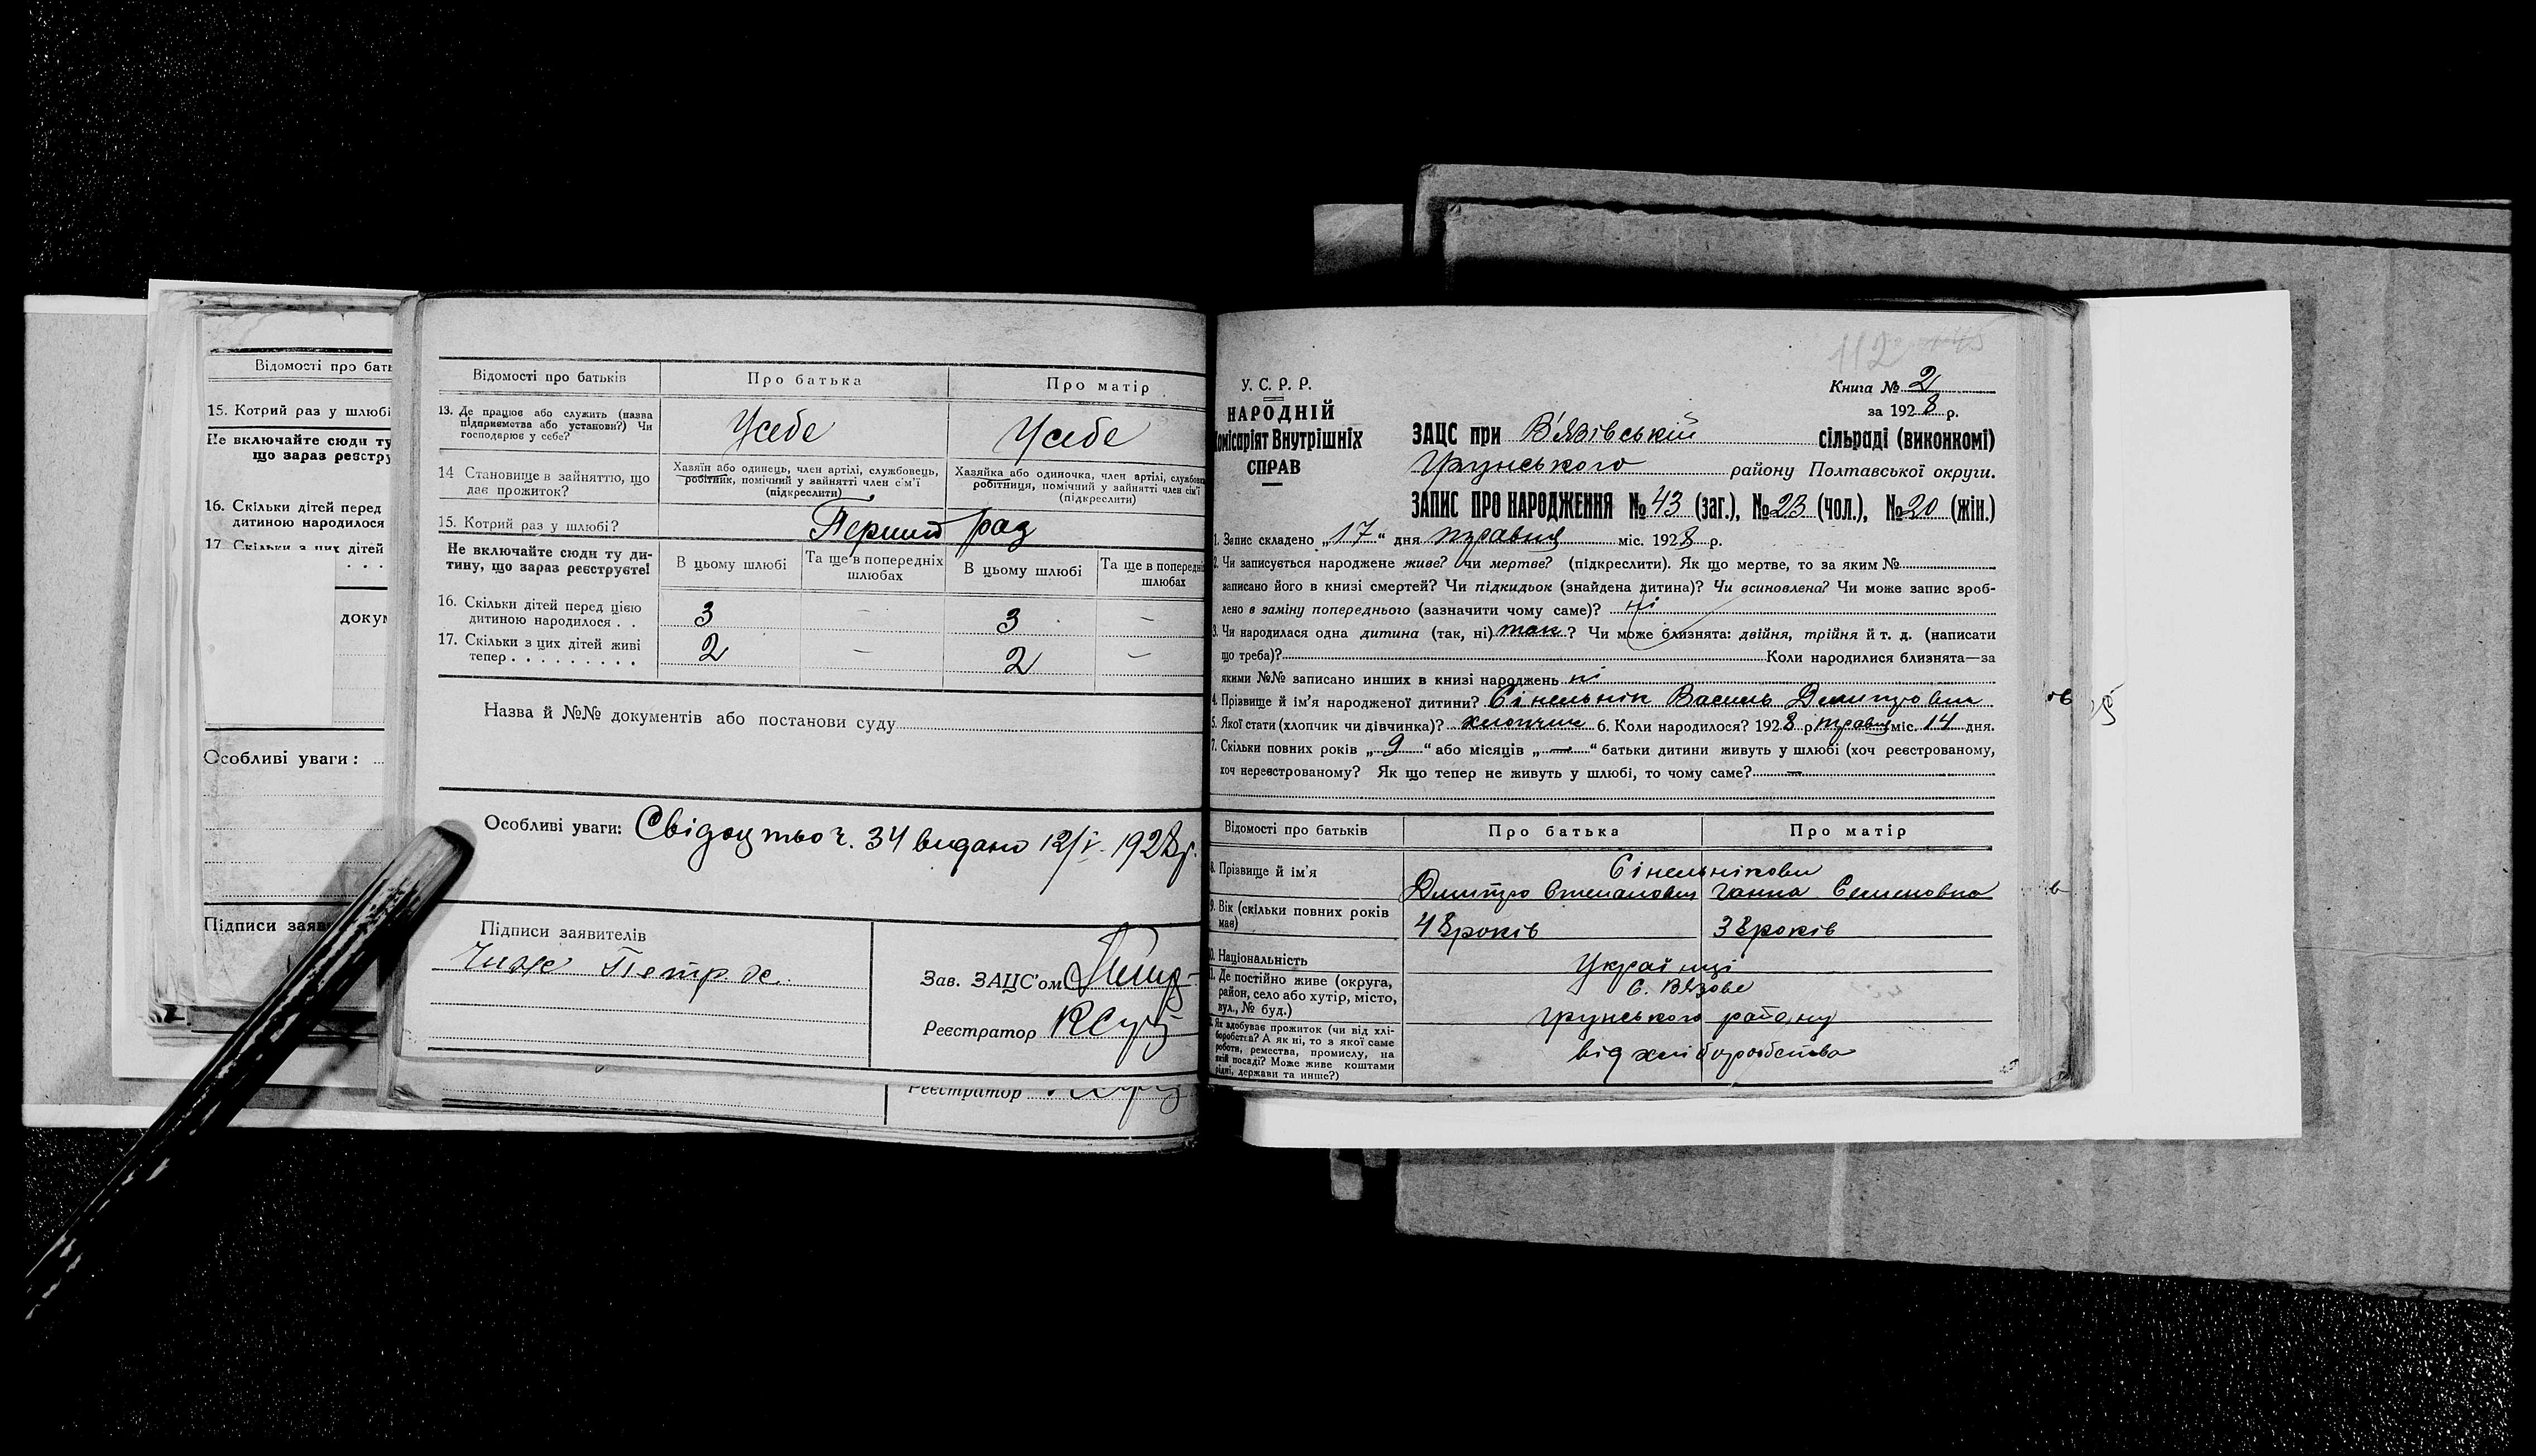 Відомості про бать
15. Котрий раз у шлюбі
Не включайте сюди ту
що зараз реєстру
16. Скільки дітей перед
дитиною народилося
17. Скільки з цих дітей
докум
Особливі уваги:
Підписи заяв
Відомості про батьків
Про батька
Про матір
13. Де працює або служить (назва
підприємства або установи?) Чи
господарює у себе?
Усебе
Усебе
14 Становище в зайняттю, що
дає прожиток?
Хазяїн або одинець, член артілі, службовець,
робітник, помічний у зайнятті член сім'ї
(підкреслити)
Хазяйка або одиночка, член артілі, службов
робітниця, помічний у зайнятті член сім'ї
(підкреслити)
15. Котрий раз у шлюбі?
Перший раз
Не включайте сюди ту ди-
тину, що зараз реєструєте!
В цьому шлюбі
Та ще в попередніх
шлюбах
В цьому шлюбі
Та ще в попередні
шлюбах
16. Скільки дітей перед цією
дитиною народилося . .
3 – 3 –
17. Скільки з цих дітей живі
тепер . . . . . . . . .
2 – 2 –
Назва й №№ документів або постанови суду
Особливі уваги: Свідоцтво ч. 34 видано 12/V 1928р.
Підписи заявителів
Зав. ЗАЦС'ом
Реєстратор
Реєстратор
112
У. С. Р. Р.
НАРОДНІЙ
Комісаріят Внутрішніх
СПРАВ
Книга № 2
за 1928 р.
ЗАЦС при В'язівській сільраді (виконкомі)
Грунського району Полтавської округи.
ЗАПИС ПРО НАРОДЖЕННЯ № 43 (заг.), № 23 (чол.), № 20 (жін.)
1. Запис складено „17“ дня травня міс. 1928 р.
2. Чи записується народжене живе? чи мертве? (підкреслити). Як що мертве, то за яким №
записано його в книзі смертей? Чи підкидьок (знайдена дитина)? Чи всиновлена? Чи може запис зроб-
лено в заміну попереднього (зазначити чому саме)? ні
3. Чи народилася одна дитина (так, ні) так? Чи може близнята: двійня, трійня й т. д. (написати
що треба)? Коли народилися близнята—за
якими №№ записано инших в книзі народжень ні
4. Прізвище й ім'я народженої дитини? Сінельнік Василь Дмитрович
5. Якої стати (хлопчик чи дівчинка)? хлопчик 6. Коли народилося? 1928 р. травня міс. 14 дня.
7. Скільки повних років „9“ або місяців „—“ батьки дитини живуть у шлюбі (хоч реєстрованому,
хоч нереєстрованому? Як що тепер не живуть у шлюбі, то чому саме? —
Відомості про батьків
Про батька
Про матір
8. Прізвище й ім'я
Сінельнікови
Дмитро Степанович Ганна Семеновна
9. Вік (скільки повних років
має)
48 років
38 років
10. Національність
Українці
11. Де постійно живе (округа,
район, село або хутір, місто,
вул., № буд.)
С. Вязове
Грунського району
12. Як здобуває прожиток (чи від хлі-
боробства? А як ні, то з якої саме
роботи, ремества, промислу, на
якій посаді? Може живе коштами
рідні, держави та инше?)
від хліборобства